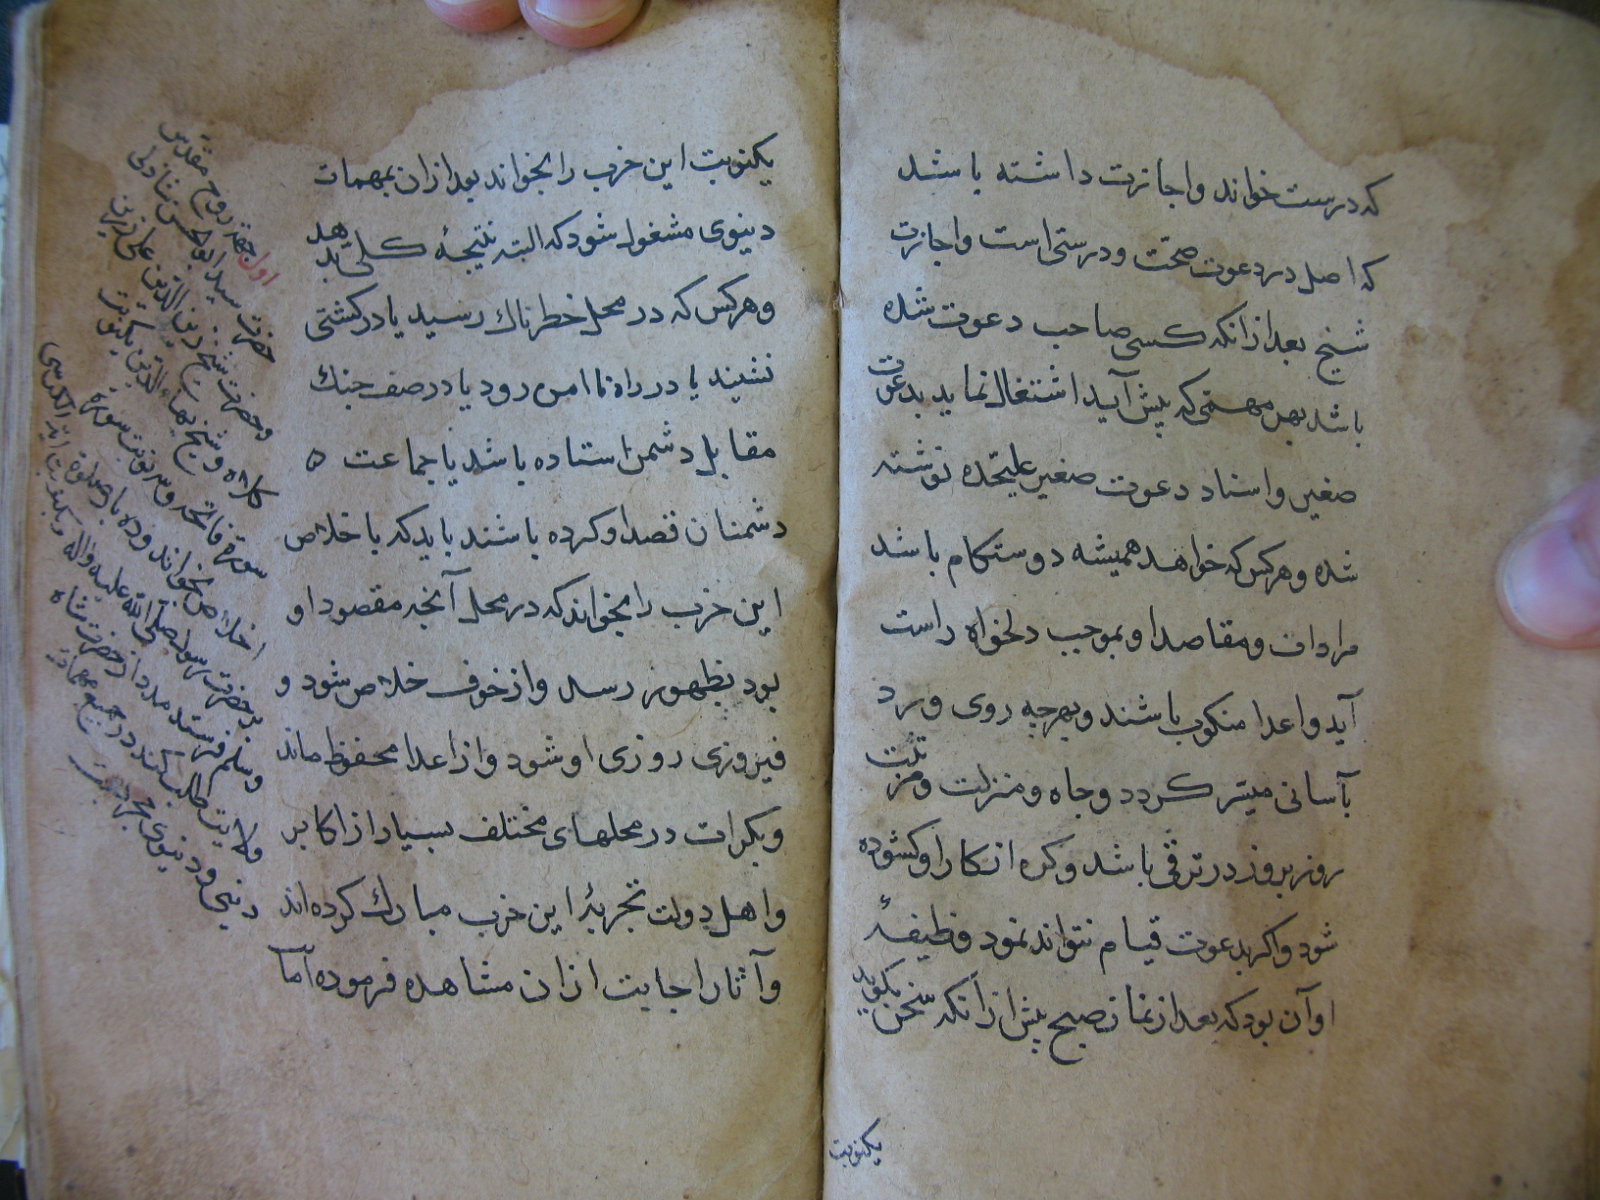 که درست خواند واجازت داشته باشد
که اصل در دعوت صحت و درستی است واجازت
شیخ بعد ازانکه کسی صاحب دعوت شده
باشد بهر مهمتی که پیش آید اشتغال نماید بدعوت
صغیر واسناد دعوت صغیر علیحده نوشته
شده وهرکس که خواهد همیشه دوستکام باشد
مرادات ومقاصد او بموجب دلخواه راست
آید واعدا منکوب باشند وبهرچه روی ورد
بآسانی میسّر کردد وجاه ومنزلت ومرتبت
روز بروز در ترقی باشد وکره از کار او کشوده
شود واکر بدعوت قیام نتواند نمود وظیفهٔ
او آن بود که بعد از نماز صبح پیش ازانکه سخن بکوید
یکنوبت
یکنوبت این حزب را بخواند بعد ازان بمهمات
دنیوی مشغول شود که البته نتیجهٔ کلی بدهد
وهرکس که در محل خطرناك رسید یا در کشتی
نشیند یا در راه ناامن رود یا در صف جنك
مقابل دشمن استاده باشد یا جماعت ه
دشمنان قصد او کرده باشند باید که باخلاص
این حزب را بخواند که در محل آنچه مقصود او
بود بظهور رسد واز خوف خلاص شود و
فیروزی روزی او شود واز اعدا محفوظ ماند
وبکرات در محلهای مختلف بسیار از اکابر
واهل دولت تجربهٔ این حزب مبارك کرده اند
وآثار اجابت ازان مشاهده فرموده امّا
اول جهة روح مقدس
حضرت سید ابوالحسن شاذلی
وحضرت شیخ زین الدین علی
کلاه وشیخ بهاء الدین یکنوبت
سورة فاتحه وسه نوبت سورة
اخلاص بخواند وده بار صلوة
بر حضرت رسول صلی الله علیه واله
وسلم فرستد مدد از حضرت شاه
ولایت طلب کند در جمیع مهمات
دینی ودنیوی مجربست
ویکنوبت ایة الکرسی